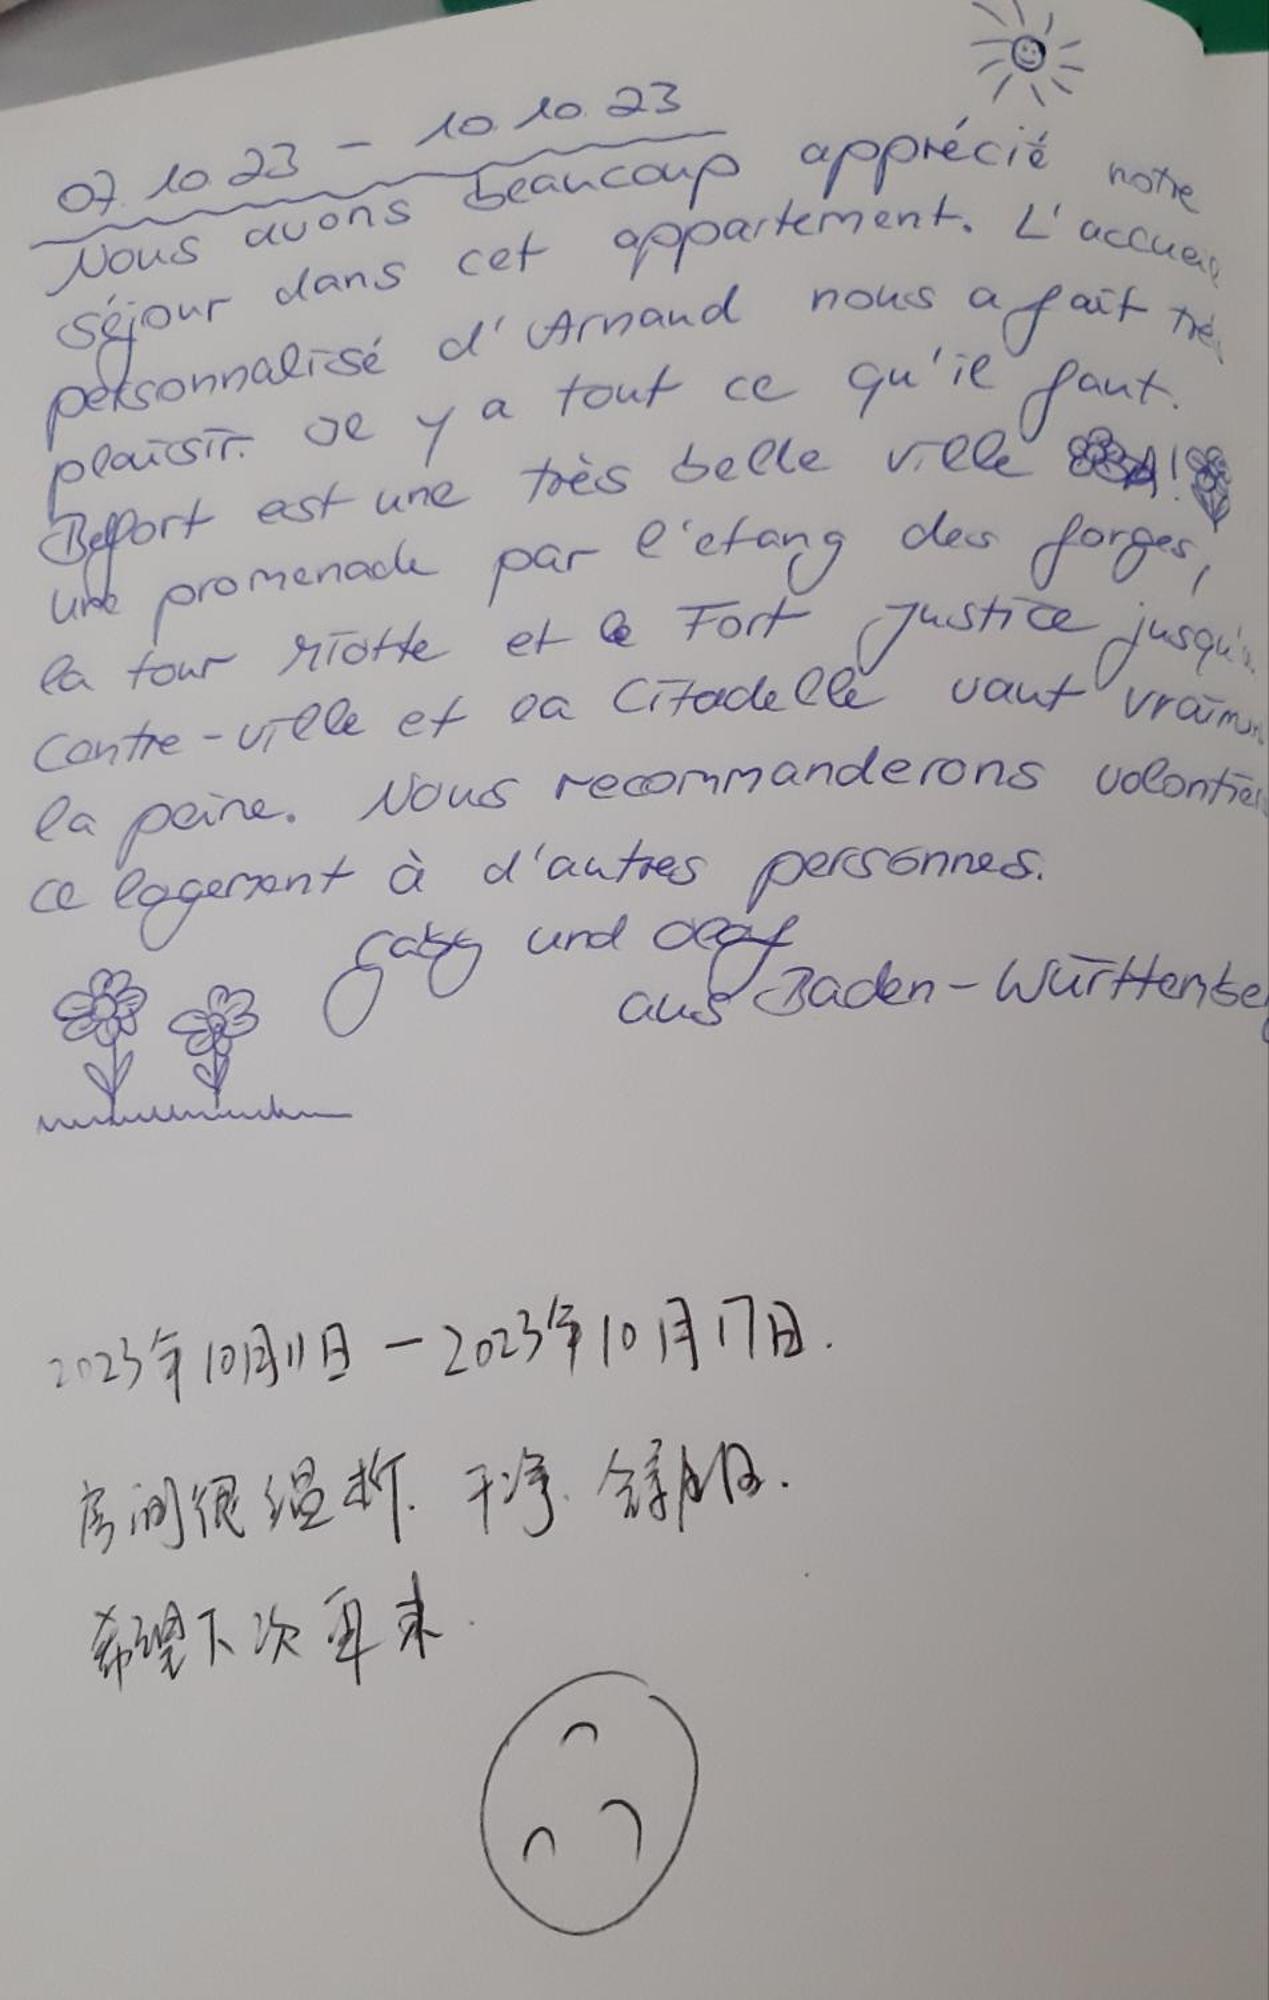 07.10.23 - 10.10.23
Nous avons beaucoup apprécié notre
séjour dans cet appartement. L'accueil
personnalisé d'Arnaud nous a fait très
plaisir. Il y a tout ce qu'il faut.
Belfort est une très belle ville !
une promenade par l'etang des forges,
la tour Miotte et le Fort Justice jusqu'au
centre-ville et la Citadelle vaut vraiment
la peine. Nous recommanderons volontiers
ce logement à d'autres personnes.
Gaby und Olaf
aus Baden-Württemberg
2023年10月11日-2023年10月17日.
房间很温析. 干净. 舒服.
希望下次再来.